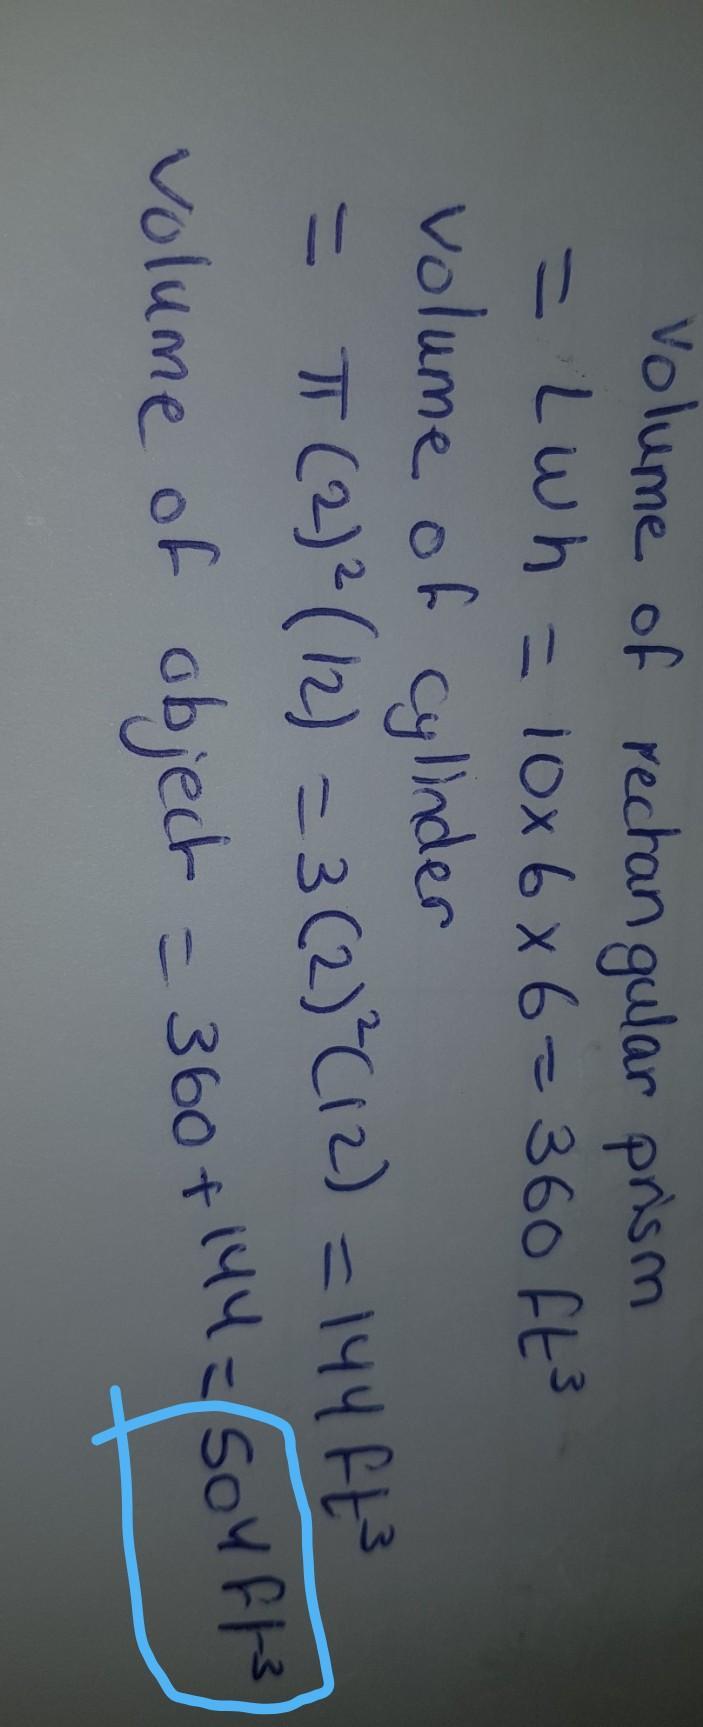 Volume of rectangular prism
= Lwh = 10x6x6 = 360ft³
Volume of cylinder
= π(2)²(12) = 3(2)²(12) = 144ft³
Volume of object = 360+144 = 504ft³